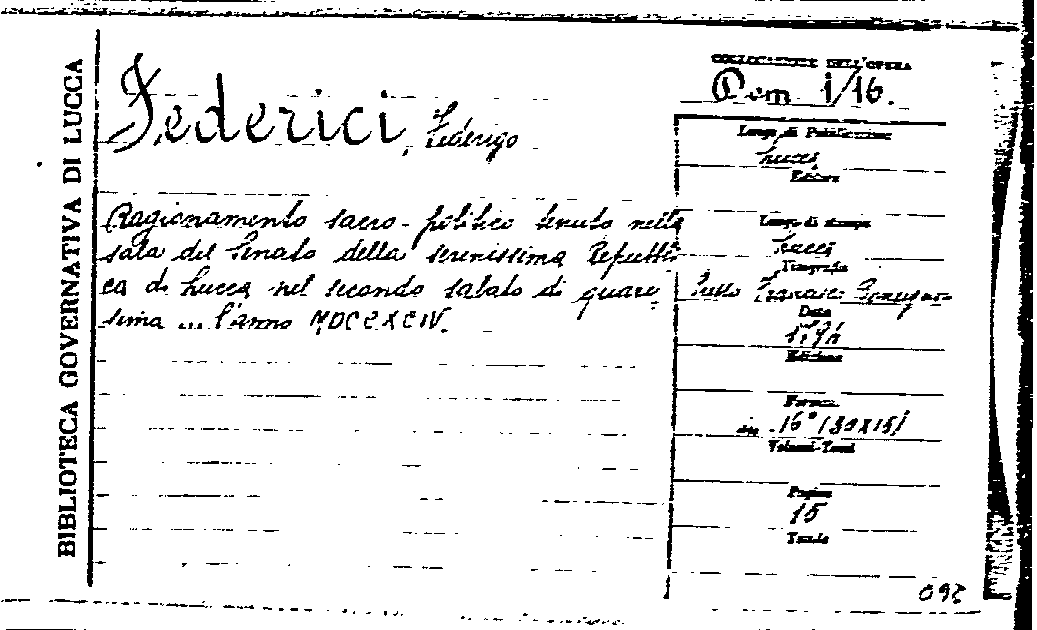 BIBLIOTECA GOVERNATIVA DI LUCCA
Federici, Federigo
Ragionamento sacro-politico tenuto nella
sala del Senato della serenissima Repubbli
ca di Lucca nel secondo sabato di quare-
sima ... l'anno MDCCXCIV.
COLLOCAZIONE DELL'OPERA
Dom 1/16.
Luogo di Pubblicazione
Lucca
Editore
Luogo di stampa
Lucca
Tipografia
Presso Francesco
Data
1794
Edizione
Formato
in 16°
Volumi-Tomi
Pagine
15
Tavole
092